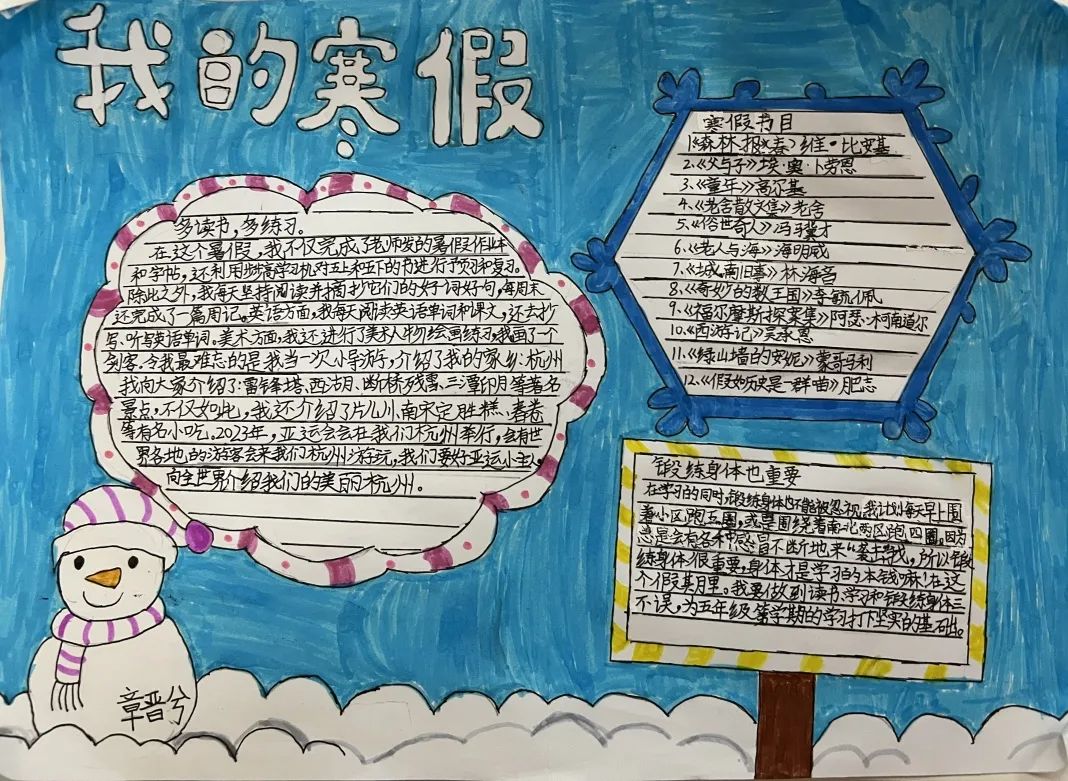 我的寒假
多读书，多练习。
在这个暑假，我不仅完成了老师发的暑假作业本
和字帖，还利用步步高学习机对五上和五下的书进行了预习和复习。
除此之外，我每天坚持阅读并摘抄它们的好词好句，每周末
还完成了一篇周记。英语方面，我每天阅读英语单词和课文，还去抄
写、听写英语单词。美术方面，我还进行了美术人物绘画练习，我画了一个
剑客。令我最难忘的是我当一次小导游，介绍了我的家乡：杭州
我向大家介绍了：雷锋塔、西湖、断桥残雪、三潭印月等著名
景点，不仅如此，我还介绍了片儿川、南宋定胜糕、春卷
等有名小吃。2023年，亚运会会在我们杭州举行，会有世
界各地的游客会来我们杭州游玩，我们要好亚运小主人
向全世界介绍我们的美丽杭州。
寒假书目
1.《森林报(春)》维·比安基
2.《父与子》埃·奥·卜劳恩
3.《童年》高尔基
4.《老舍散文集》老舍
5.《俗世奇人》冯骥才
6.《老人与海》海明威
7.《城南旧事》林海音
8.《奇妙的数王国》李毓佩
9.《福尔摩斯探案集》阿瑟·柯南道尔
10.《西游记》吴承恩
11.《绿山墙的安妮》蒙哥马利
12.《假如历史是一群喵》肥志
锻炼身体也重要
在学习的同时，锻练身体也不能被忽视。我计划每天早上围
着小区跑五圈，或是围绕着南北两区跑四圈。因为
总是会有各种感冒不断地来“袭击”我，所以锻
练身体很重要。身体才是学习的本钱嘛！在这
个假期里。我要做到读书、学习和锻练身体三
不误，为五年级第学期的学习打下坚实的基础。
章晋兮